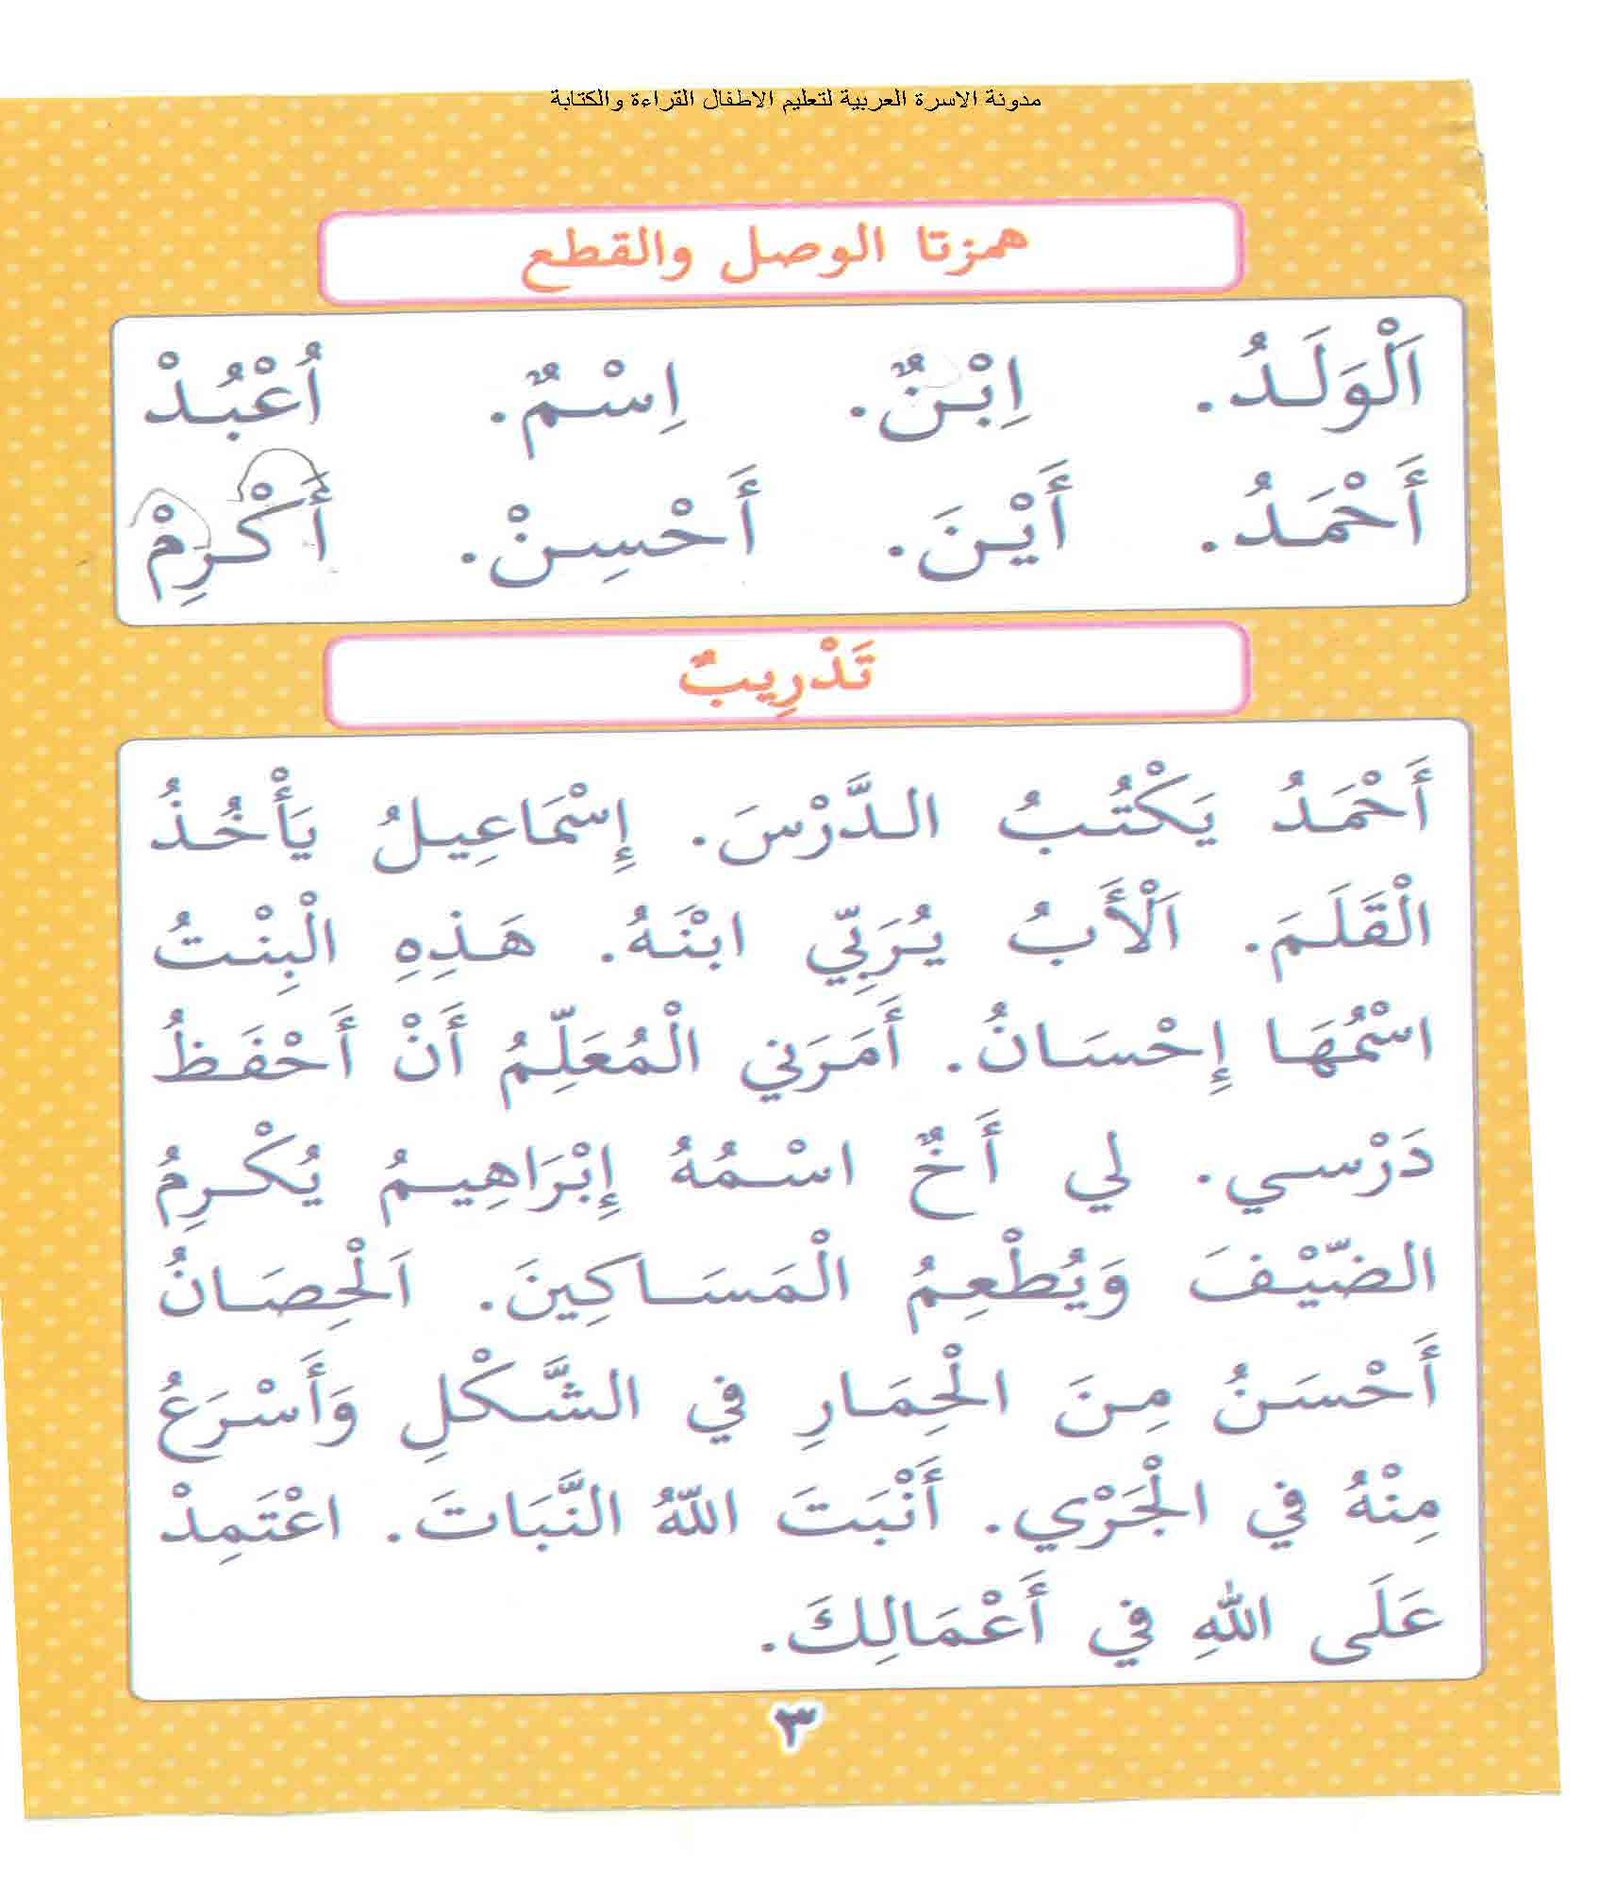 مدونة الاسرة العربية لتعليم الاطفال القراءة والكتابة
همزتا الوصل والقطع
اَلْوَلَدُ. اِبْنٌ. اِسْمٌ. اُعْبُدْ
أَحْمَدُ. أَيْنَ. أَحْسِنْ. أَكْرِمْ
تَدْرِيبٌ
أَحْمَدُ يَكْتُبُ الدَّرْسَ. إِسْمَاعِيلُ يَأْخُذُ
الْقَلَمَ. اَلْأَبُ يُرَبِّي ابْنَهُ. هَذِهِ الْبِنْتُ
اسْمُهَا إِحْسَانُ. أَمَرَنِي الْمُعَلِّمُ أَنْ أَحْفَظُ
دَرْسي. لي أَخٌ اسْمُهُ إِبْرَاهِيمُ يُكْرِمُ
الضّيْفَ وَيُطْعِمُ الْمَسَاكِينَ. اَلْحِصَانُ
أَحْسَنُ مِنَ الْحِمَارِ في الشَّكْلِ وَأَسْرَعُ
مِنْهُ في الْجَرْي. أَنْبَتَ اللّهُ النَّبَاتَ. اعْتَمِدْ
عَلَى اللهِ في أَعْمَالِكَ.
٣